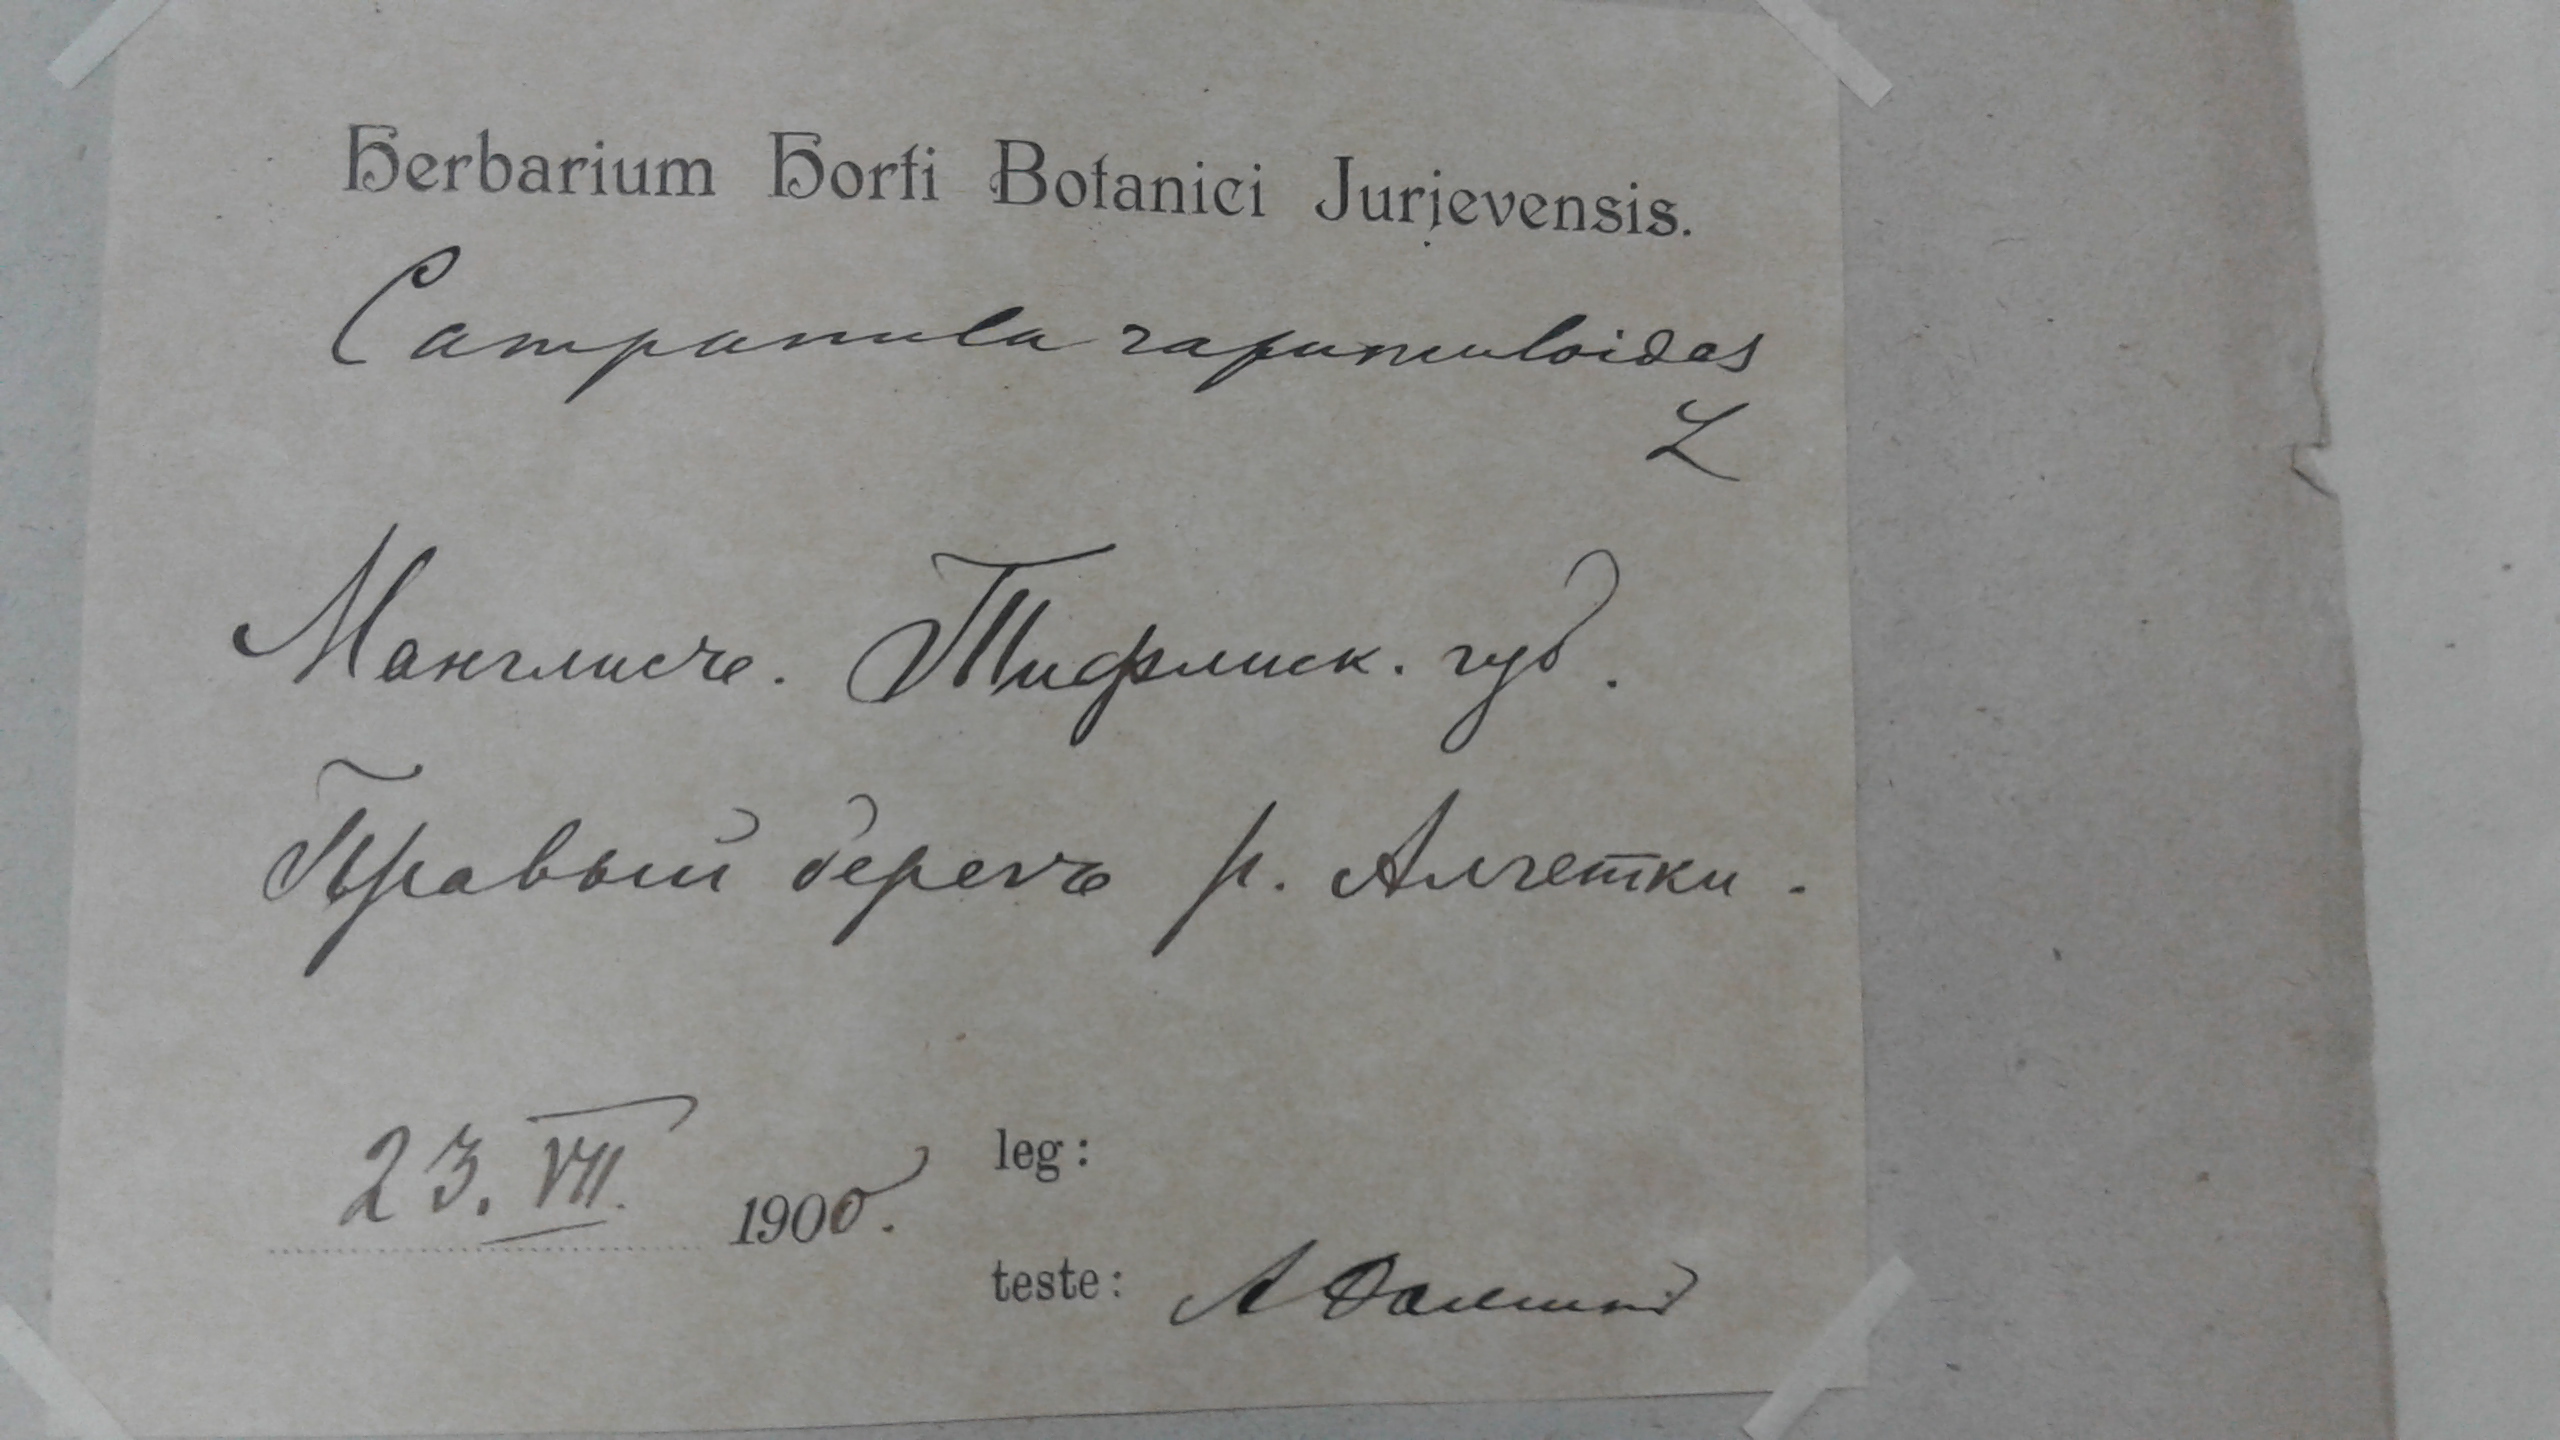 Herbarium Horti Botanici Jurjevensis.
Campanula rapunculoides
L
Манглисъ. Тифлиск. губ.
Правый берегъ р. Алгетки.
23. VII. 1900.
leg:
teste: А